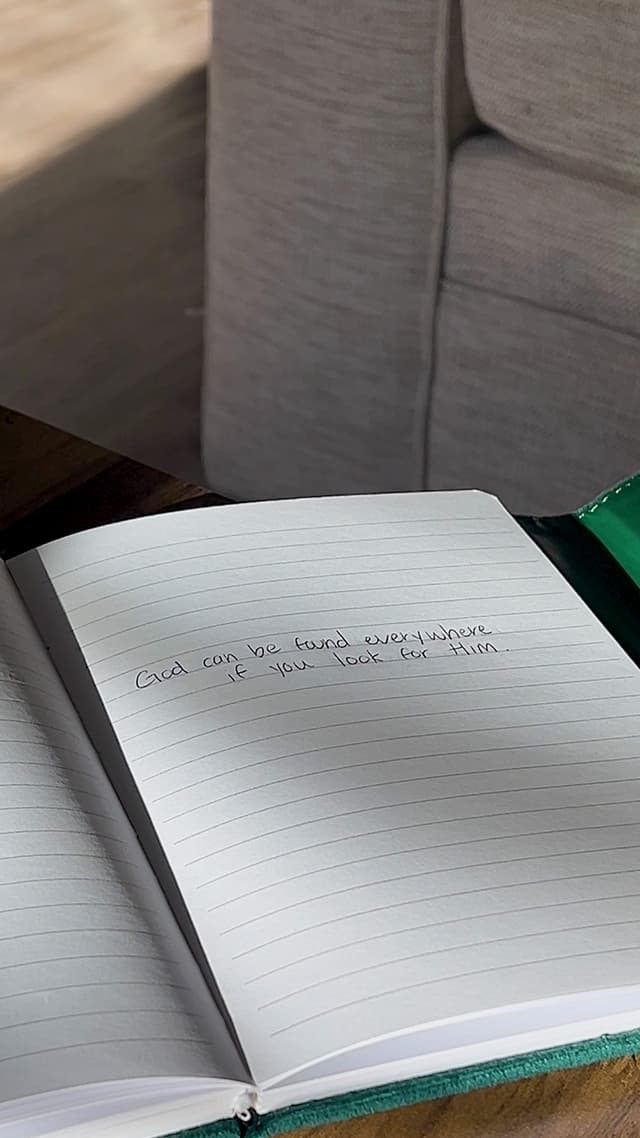 God can be found everywhere
if you look for Him.